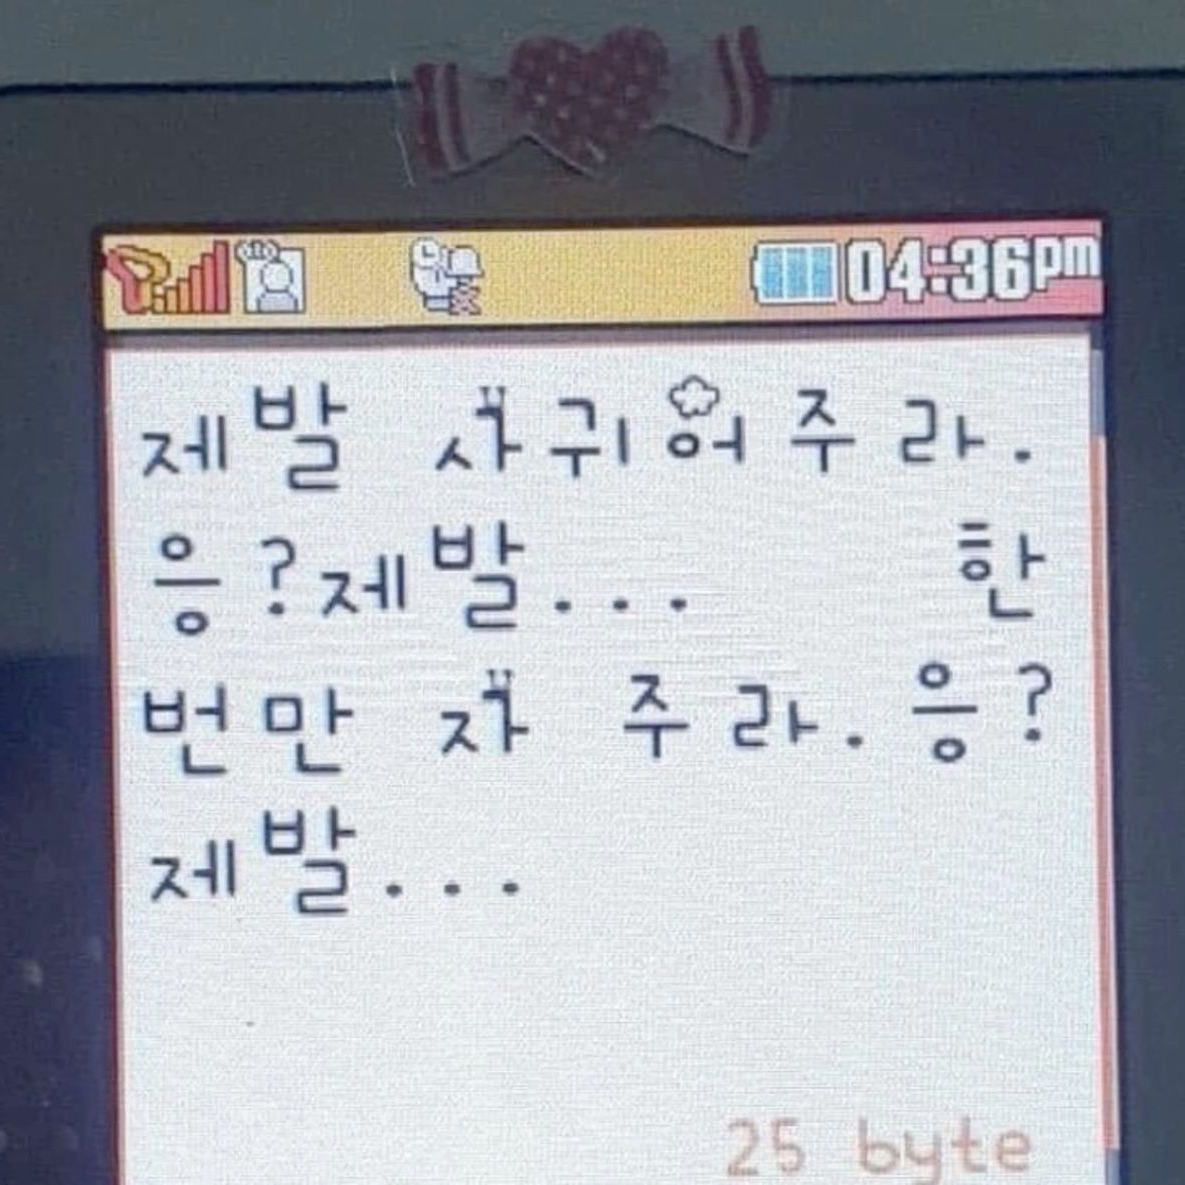 04:36pm
제발 사귀어주라.
응?제발... 한
번만 자 주라.응?
제발...
25 byte